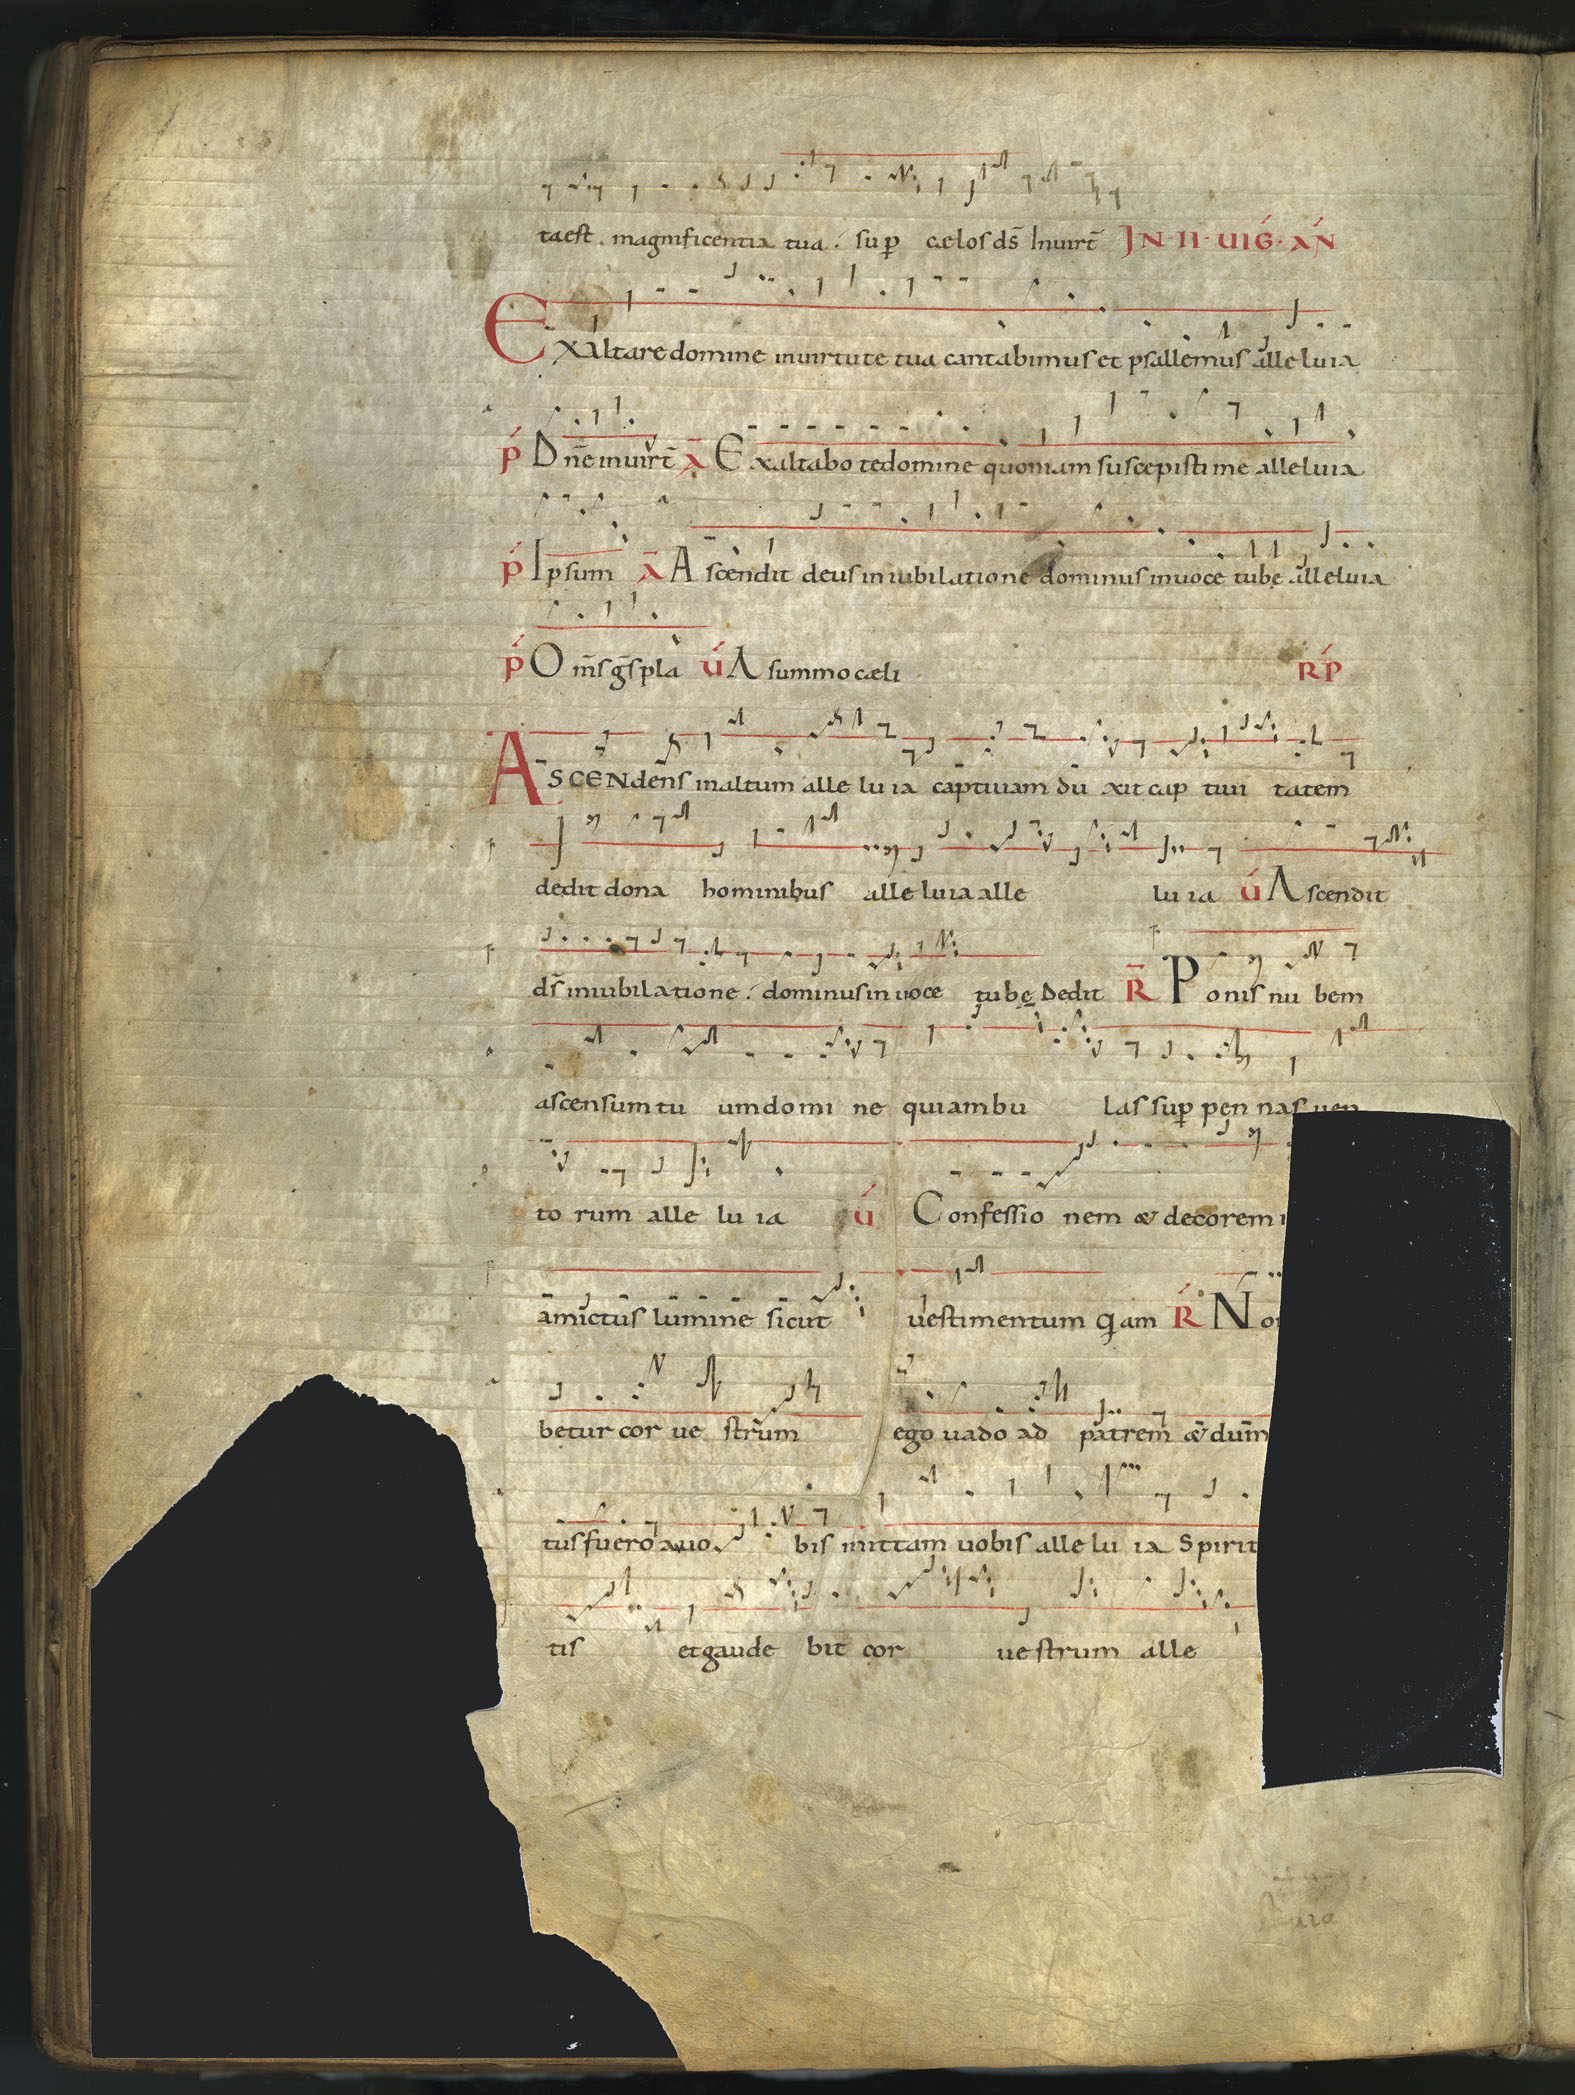 ta est. magnificentia tua. sup cælos ds̄ In uirt̄ IN · II · UIG · AN
Exaltare domine in uirtute tua cantabimus et psallemus alleluia
P Dn̄e in uirt̄ A Exaltabo te domine quoniam suscepisti me alleluia
P Ipsum A Ascendit deus in iubilatione dominus in uoce tubę alleluia
P Om̄s ḡs pla U A summo cæli RP
ASCENdens in altum alle lu ia captiuam du xit cap tiui tatem
dedit dona hominibus alle luia alle lu ia U Ascendit
ds̄ in iubilatione. dominus in uoce tubę Dedit R Ponis nu bem
ascensum tu um domi ne qui ambu las sup pen nas uen
to rum alle lu ia U Confessio nem & decorem i
amictus lumine sicut uestimentum Qui am R Non
betur cor ue strum ego uado ad patrem & dum
tus fuero a uo bis mittam uobis alle lu ia Spirit
tis et gaude bit cor ue strum alle